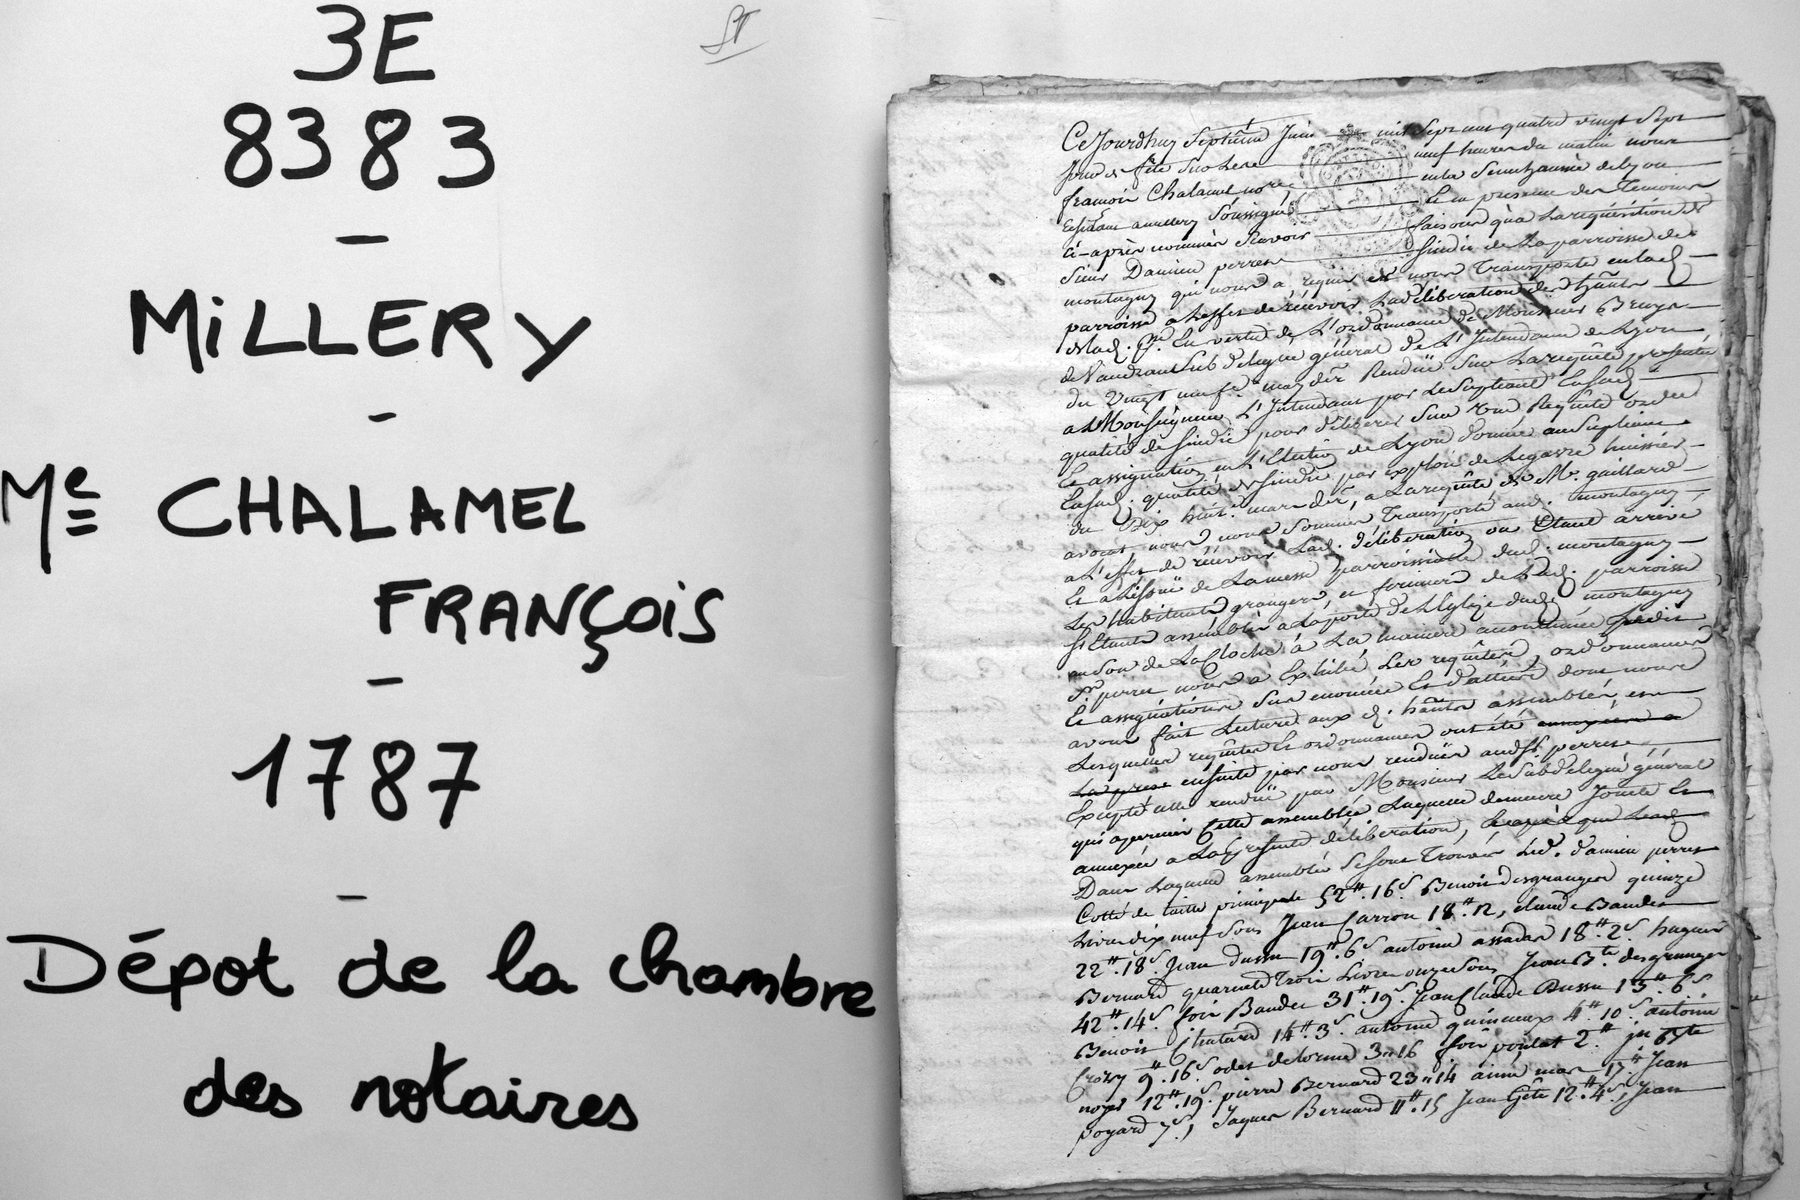 3E
8383
–
MiLLERY
-
Me CHALAMEL
FRANÇOiS
–
1787
–
Dépot de la chambre
des notaires
Ce Jourdhuy Septième Juin mil Sept cent quatre vingt Sept
Jour de fête Sur Les neuf heures du matin nous
françois Chalamel nore en la Senechaussée de Lyon
Soussigné Et en presence des Temoins
ci-après nommés Scavoir faisons qu'a La requisition de
Sieur Damien perret Sindic de La parroisse de
montagny qui nous a requis de nous Transporter en lad
parroisse a Leffet de recevoir La déliberation des hâbts
En vertu de L'ordonnance de Monsieur
Subdelegué général de L'Intendance de Lyon
du vingt neuf may der Rendüe Sur La requête presentée
a Monseigneur L'Intendant par Le Supliant
qualité de Sindic pour déliberer Sur une Requête ordce
Et assignation en L'Election de Lyon donnée au Supliant
qualité de Sindic par exploit de Legavre huissier
du Dix huit mars der, a La requête de Mr. gaillard
avocat, nous nous Sommes Transporté aud. montagny
a L'effet de recevoir Lad. déliberation ou Etant arrivé
Et a L'issüe de La messe parroissialle dud. montagny
Les habitants grangers, et fermiers de Lad. parroisse
S'Etants assemblés a La porte de L'Eglize dud. montagny
au Son de La Cloche a La maniere accoutumée Ledit
Sr. perret nous a Exhibé Les requêtes, ordonnances
Et assignations Sus enoncées Et dattées dont nous
avons fait Lecture aux d. hâbts assemblés,
Lesquelles requêtes Et ordonnances ont été
ensuite par nous rendües aud. Sr. perret
Excepté celle rendüe par Monsieur Le Subdelegué général
qui a permis Cette assemblée Laquelle demeure Jointe Et
annexée a La presente déliberation,
Dans Laquelle assemblée Se Sont Trouvés Led. damien perret
Cotté de taille principale 52#.16s Benoit desgranges quinze
Livres dix neuf Sous Jean Carron 18#.12, claude Baudet
22#.18s. Jean dussu 19#.6s antoine assadas 18#.2s. hugues
Bernard quarente Trois Livres onze Sous Jean Bte desgranges
42#.14s. foir Baudet 31#.19s. Jean Claude Dussu 13#.6s
Benoit Chatard 14#.3s. antoine 4#.10s. antoine
Crozy 9#.16s. odet delorme 3#16 foir poulat 2#
12#.19s. pierre Bernard 23#14 aimé mas 17# Jean
poyard 7s, Jaques Bernard 11#.15 Jean Gête 12#.4s, Jean